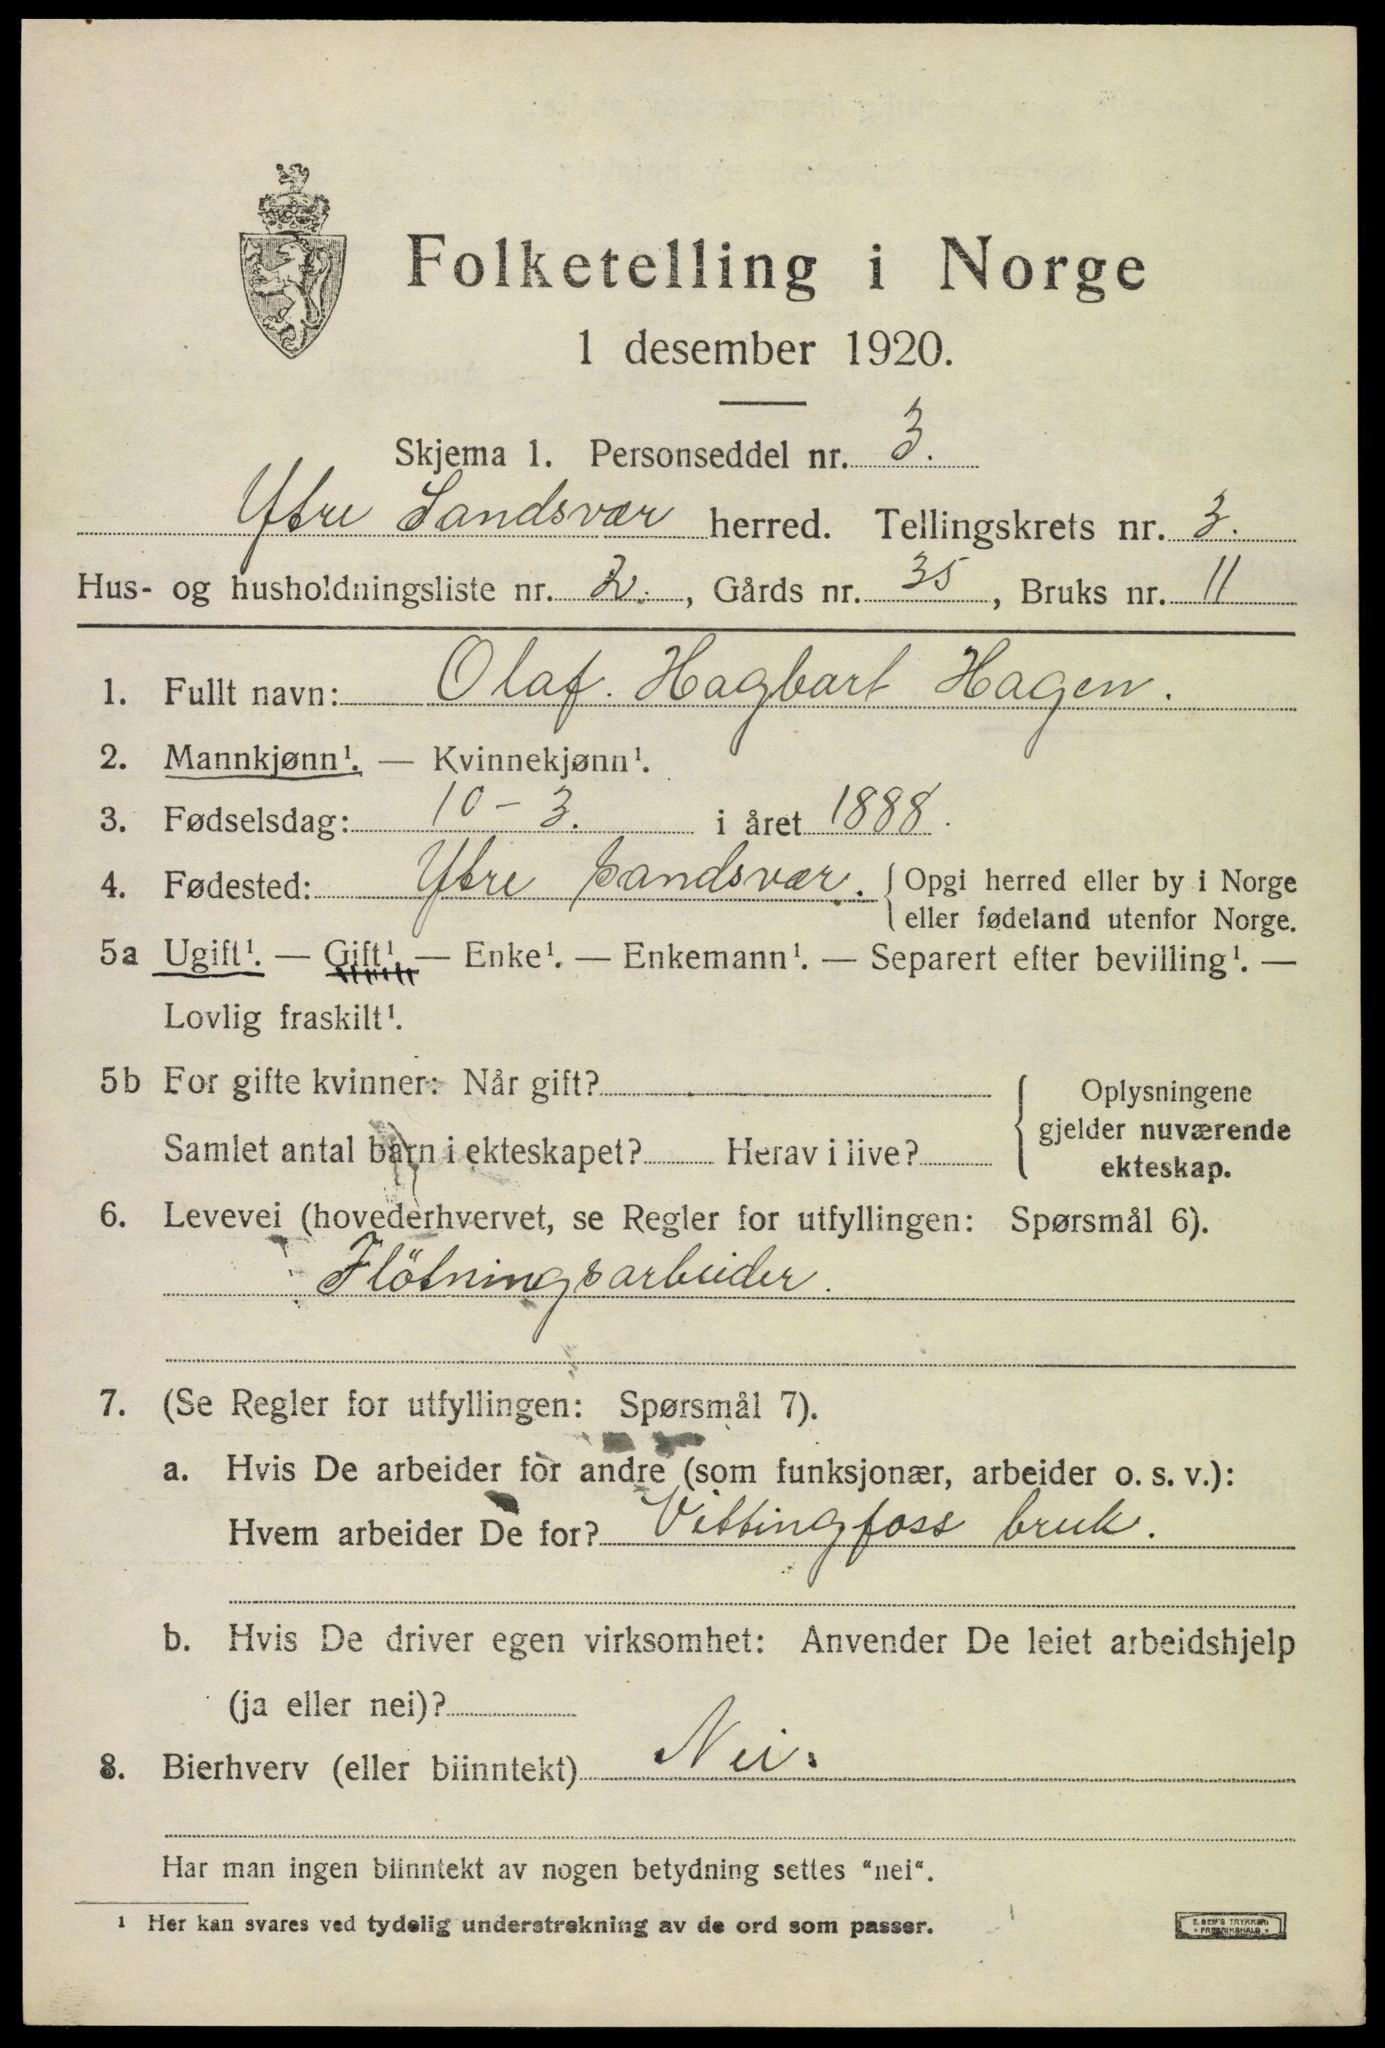 Folketelling i Norge
1 desember 1920.
Skjema 1. Personseddel nr. 3.
Ytre Sandsvær herred. Tellingskrets nr. 3.
Hus- og husholdningsliste nr. 2., Gårds nr. 35, Bruks nr. 11
1. Fullt navn: Olaf. Hagbart Hagen.
2. Mannkjønn¹. — Kvinnekjønn¹.
3. Fødselsdag: 10-3. i året 1888.
4. Fødested: Ytre Sandsvær. { Opgi herred eller by i Norge
eller fødeland utenfor Norge.
5a Ugift¹. — Gift¹. — Enke¹. — Enkemann¹. — Separert efter bevilling¹. —
Lovlig fraskilt¹.
5b For gifte kvinner: Når gift?
Samlet antal barn i ekteskapet? Herav i live?
{ Oplysningene
gjelder nuværende
ekteskap.
6. Levevei (hovederhvervet, se Regler for utfyllingen: Spørsmål 6).
Flötningsarbeider.
7. (Se Regler for utfyllingen: Spørsmål 7).
a. Hvis De arbeider for andre (som funksjonær, arbeider o. s. v.):
Hvem arbeider De for? Vittingfoss bruk.
b. Hvis De driver egen virksomhet: Anvender De leiet arbeidshjelp
(ja eller nei)?
8. Bierhverv (eller biinntekt) Nei.
Har man ingen biinntekt av nogen betydning settes "nei".
¹ Her kan svares ved tydelig understrekning av de ord som passer.
E. SEM'S TRYKKERI
* FREDRIKSHALD *